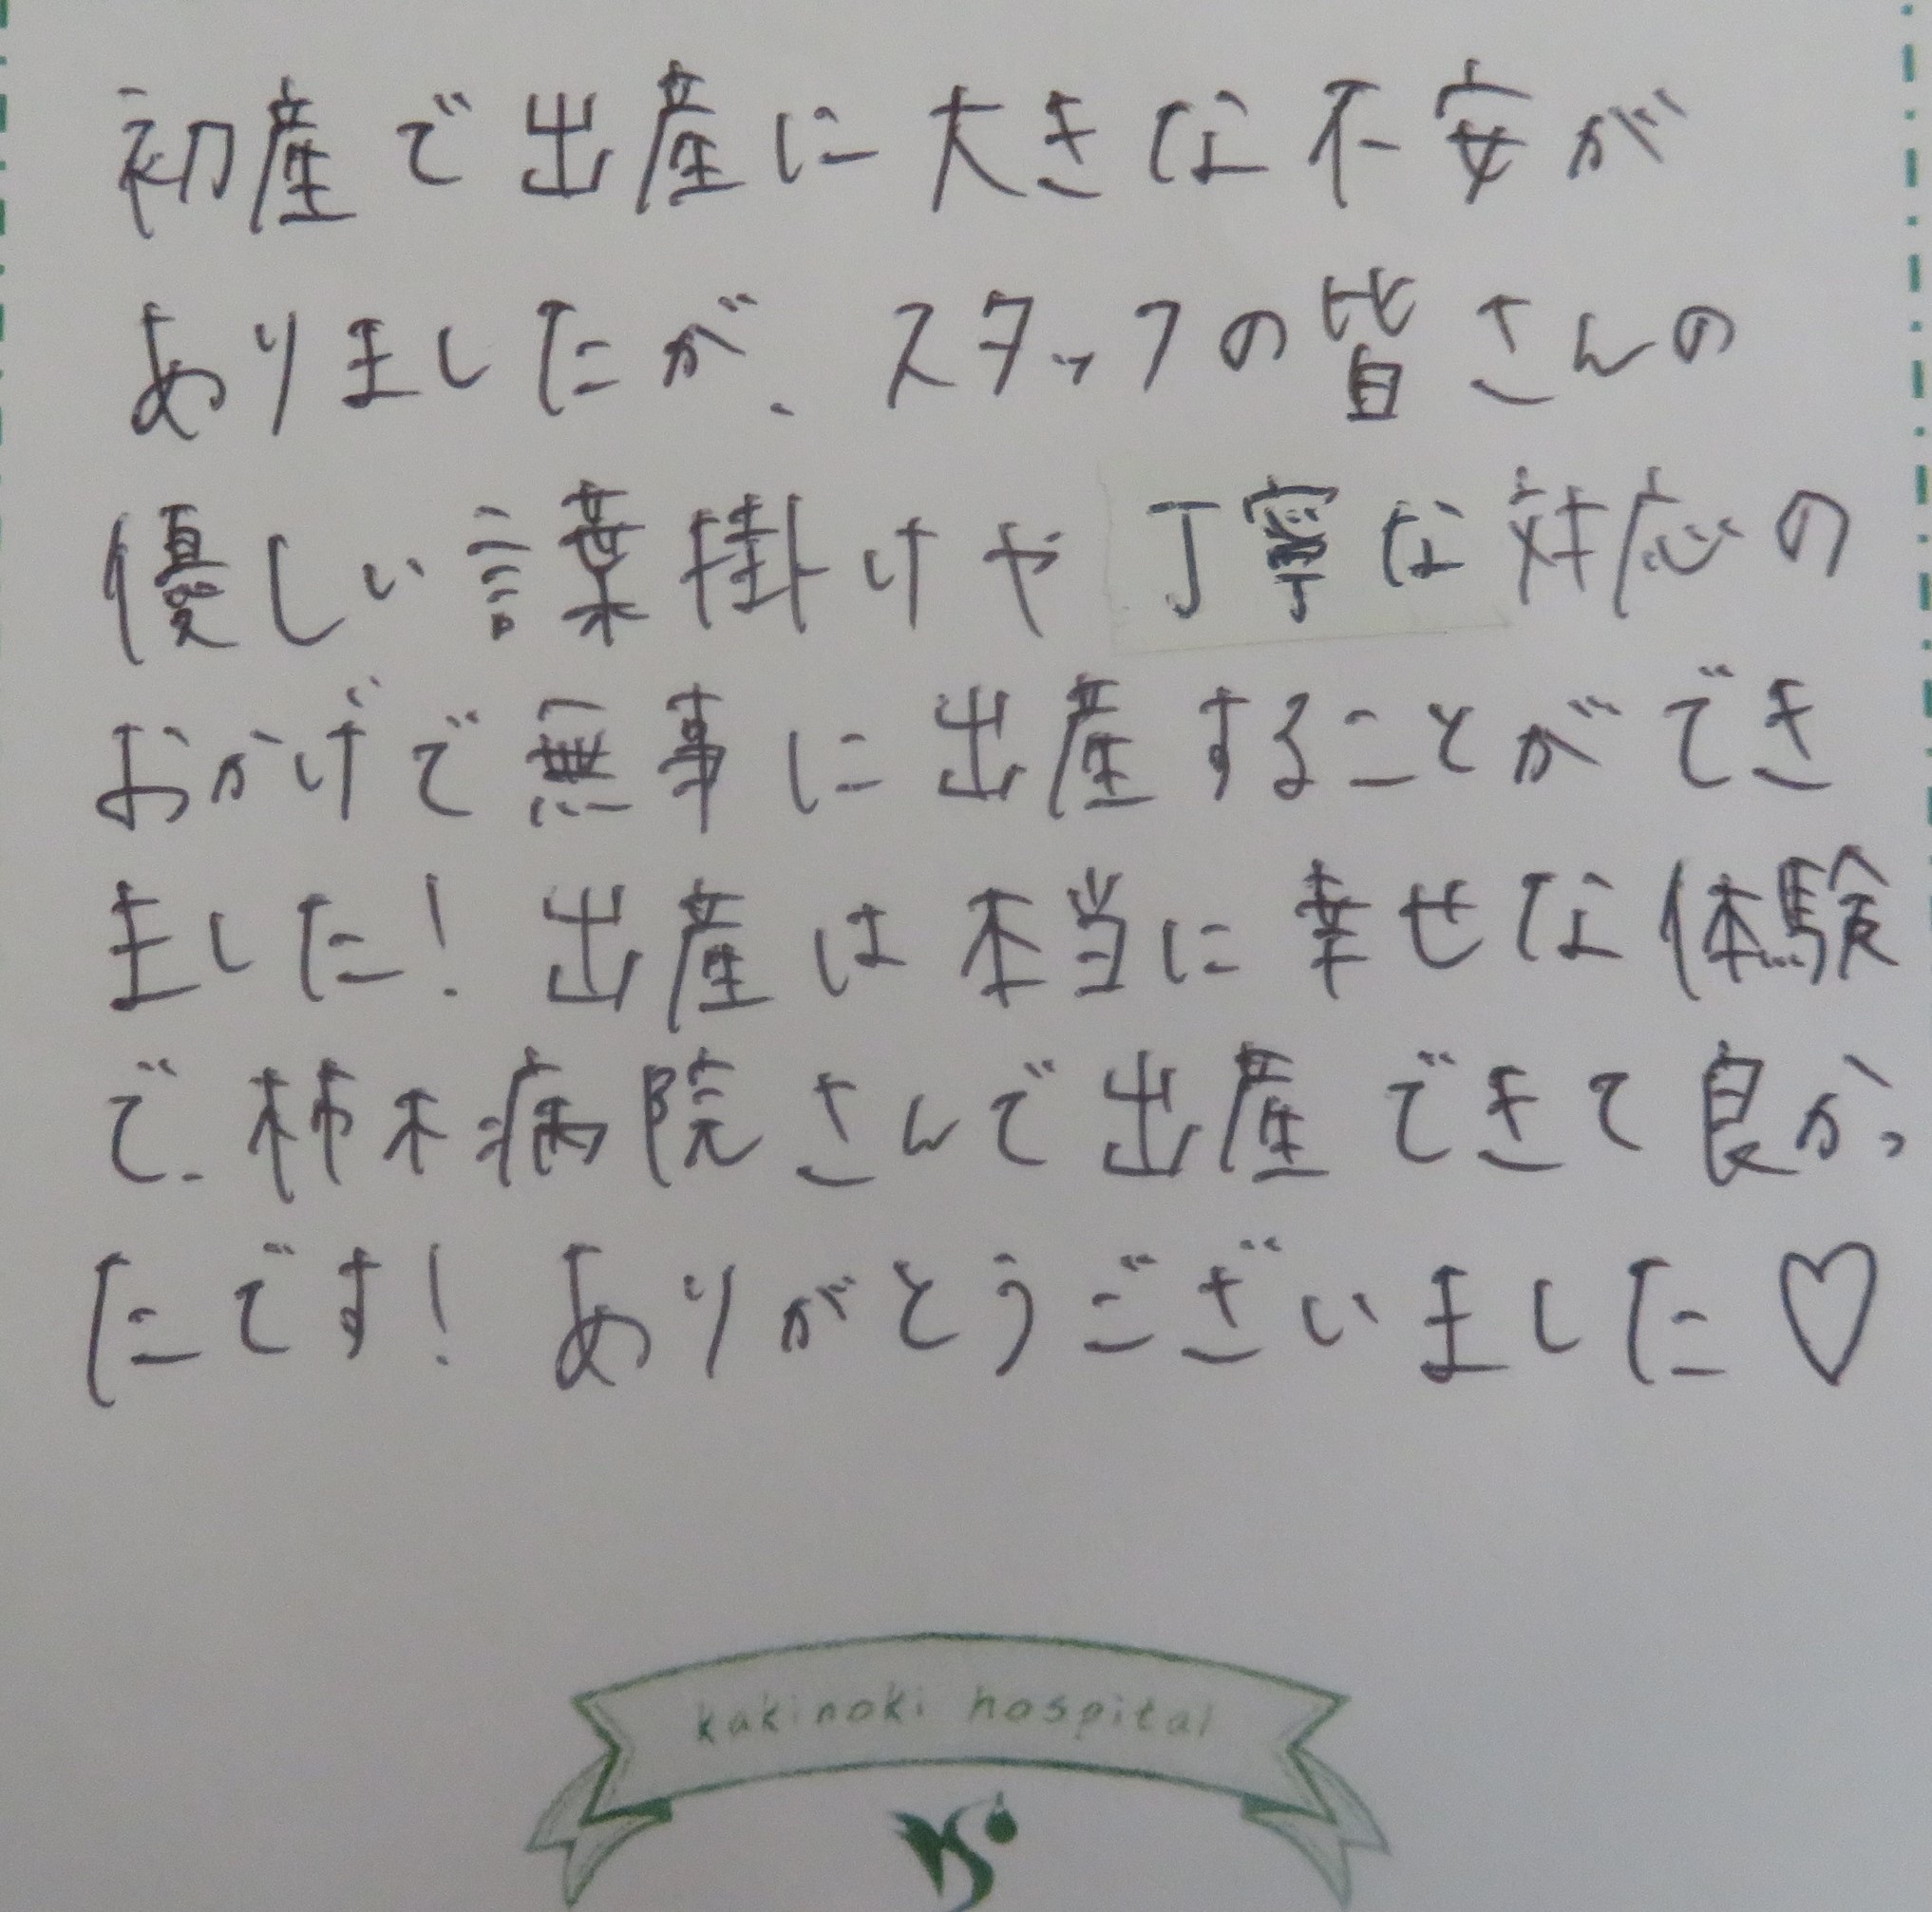 初産で出産に大きな不安が
ありましたが、スタッフの皆さんの
優しい言葉掛けや丁寧な対応の
おかげで無事に出産することができ
ました!出産は本当に幸せな体験
で、柿木病院さんで出産できて良かっ
たです!ありがとうございました♡
kakinoki hospital